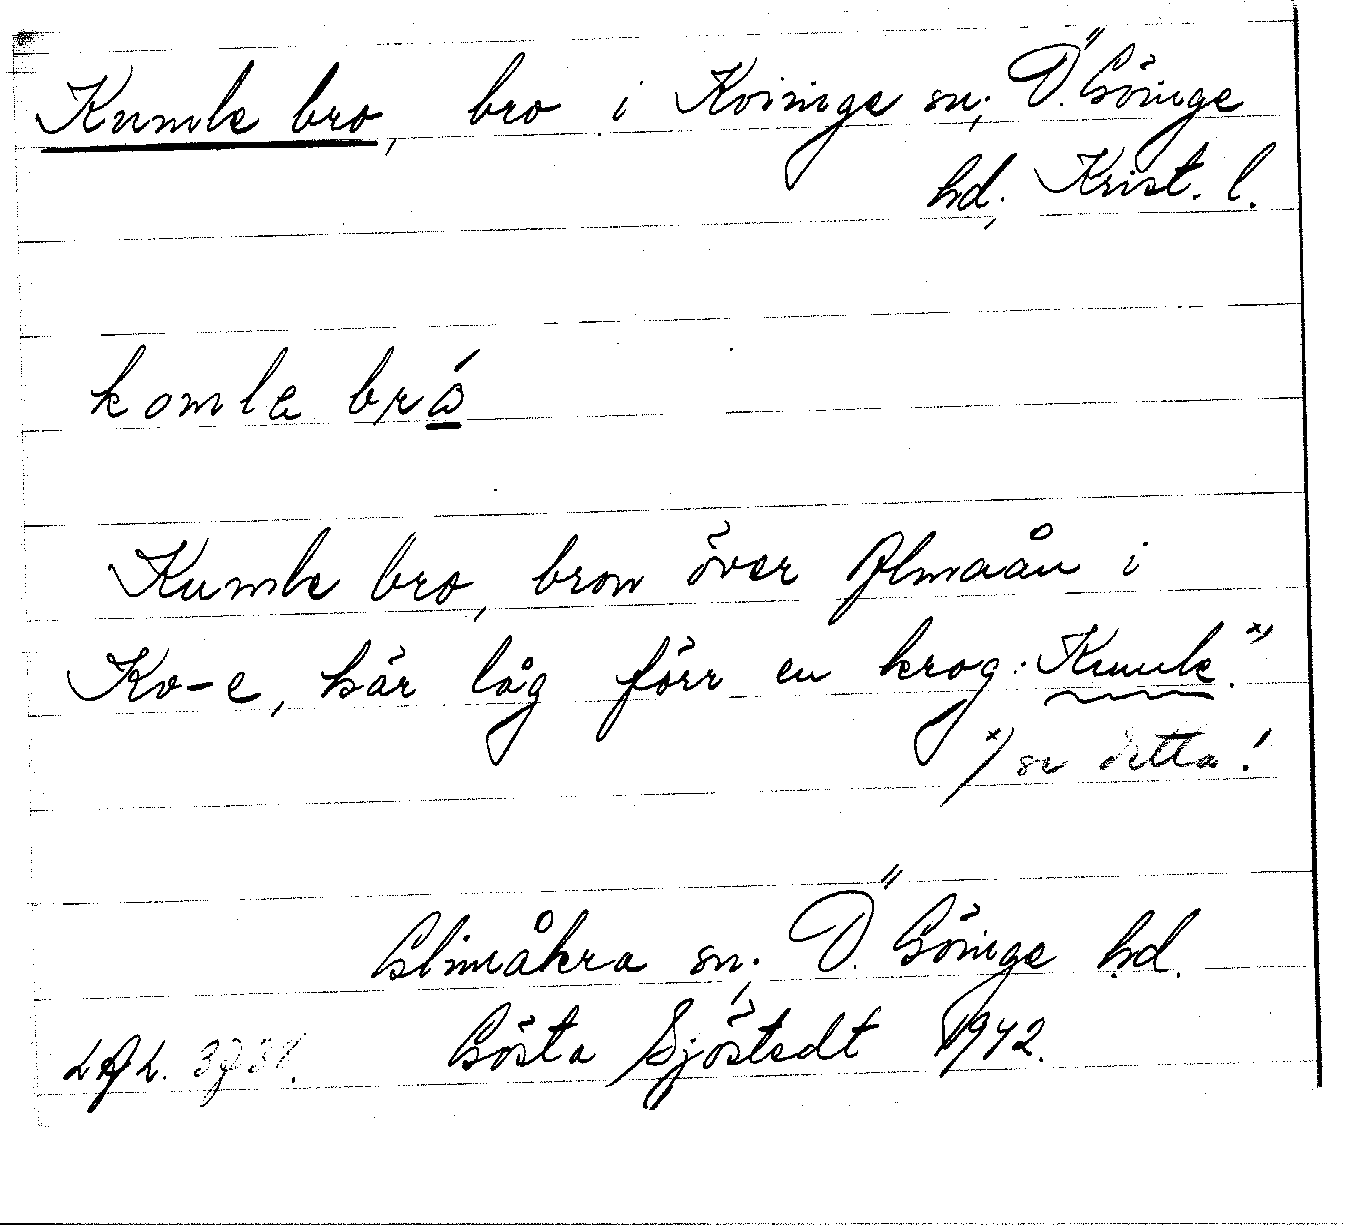 Kumle bro, bro i Kviinge sn, Ö. Göinge
hd, Krist. l.
komla bró
Kumle bro, bron över Almaån i
Kv-e, här låg förr en krog: Kumle.x)
x/ se detta!
Glimåkra sn, Ö. Göinge hd.
LAL. Gösta Sjöstedt 1942.